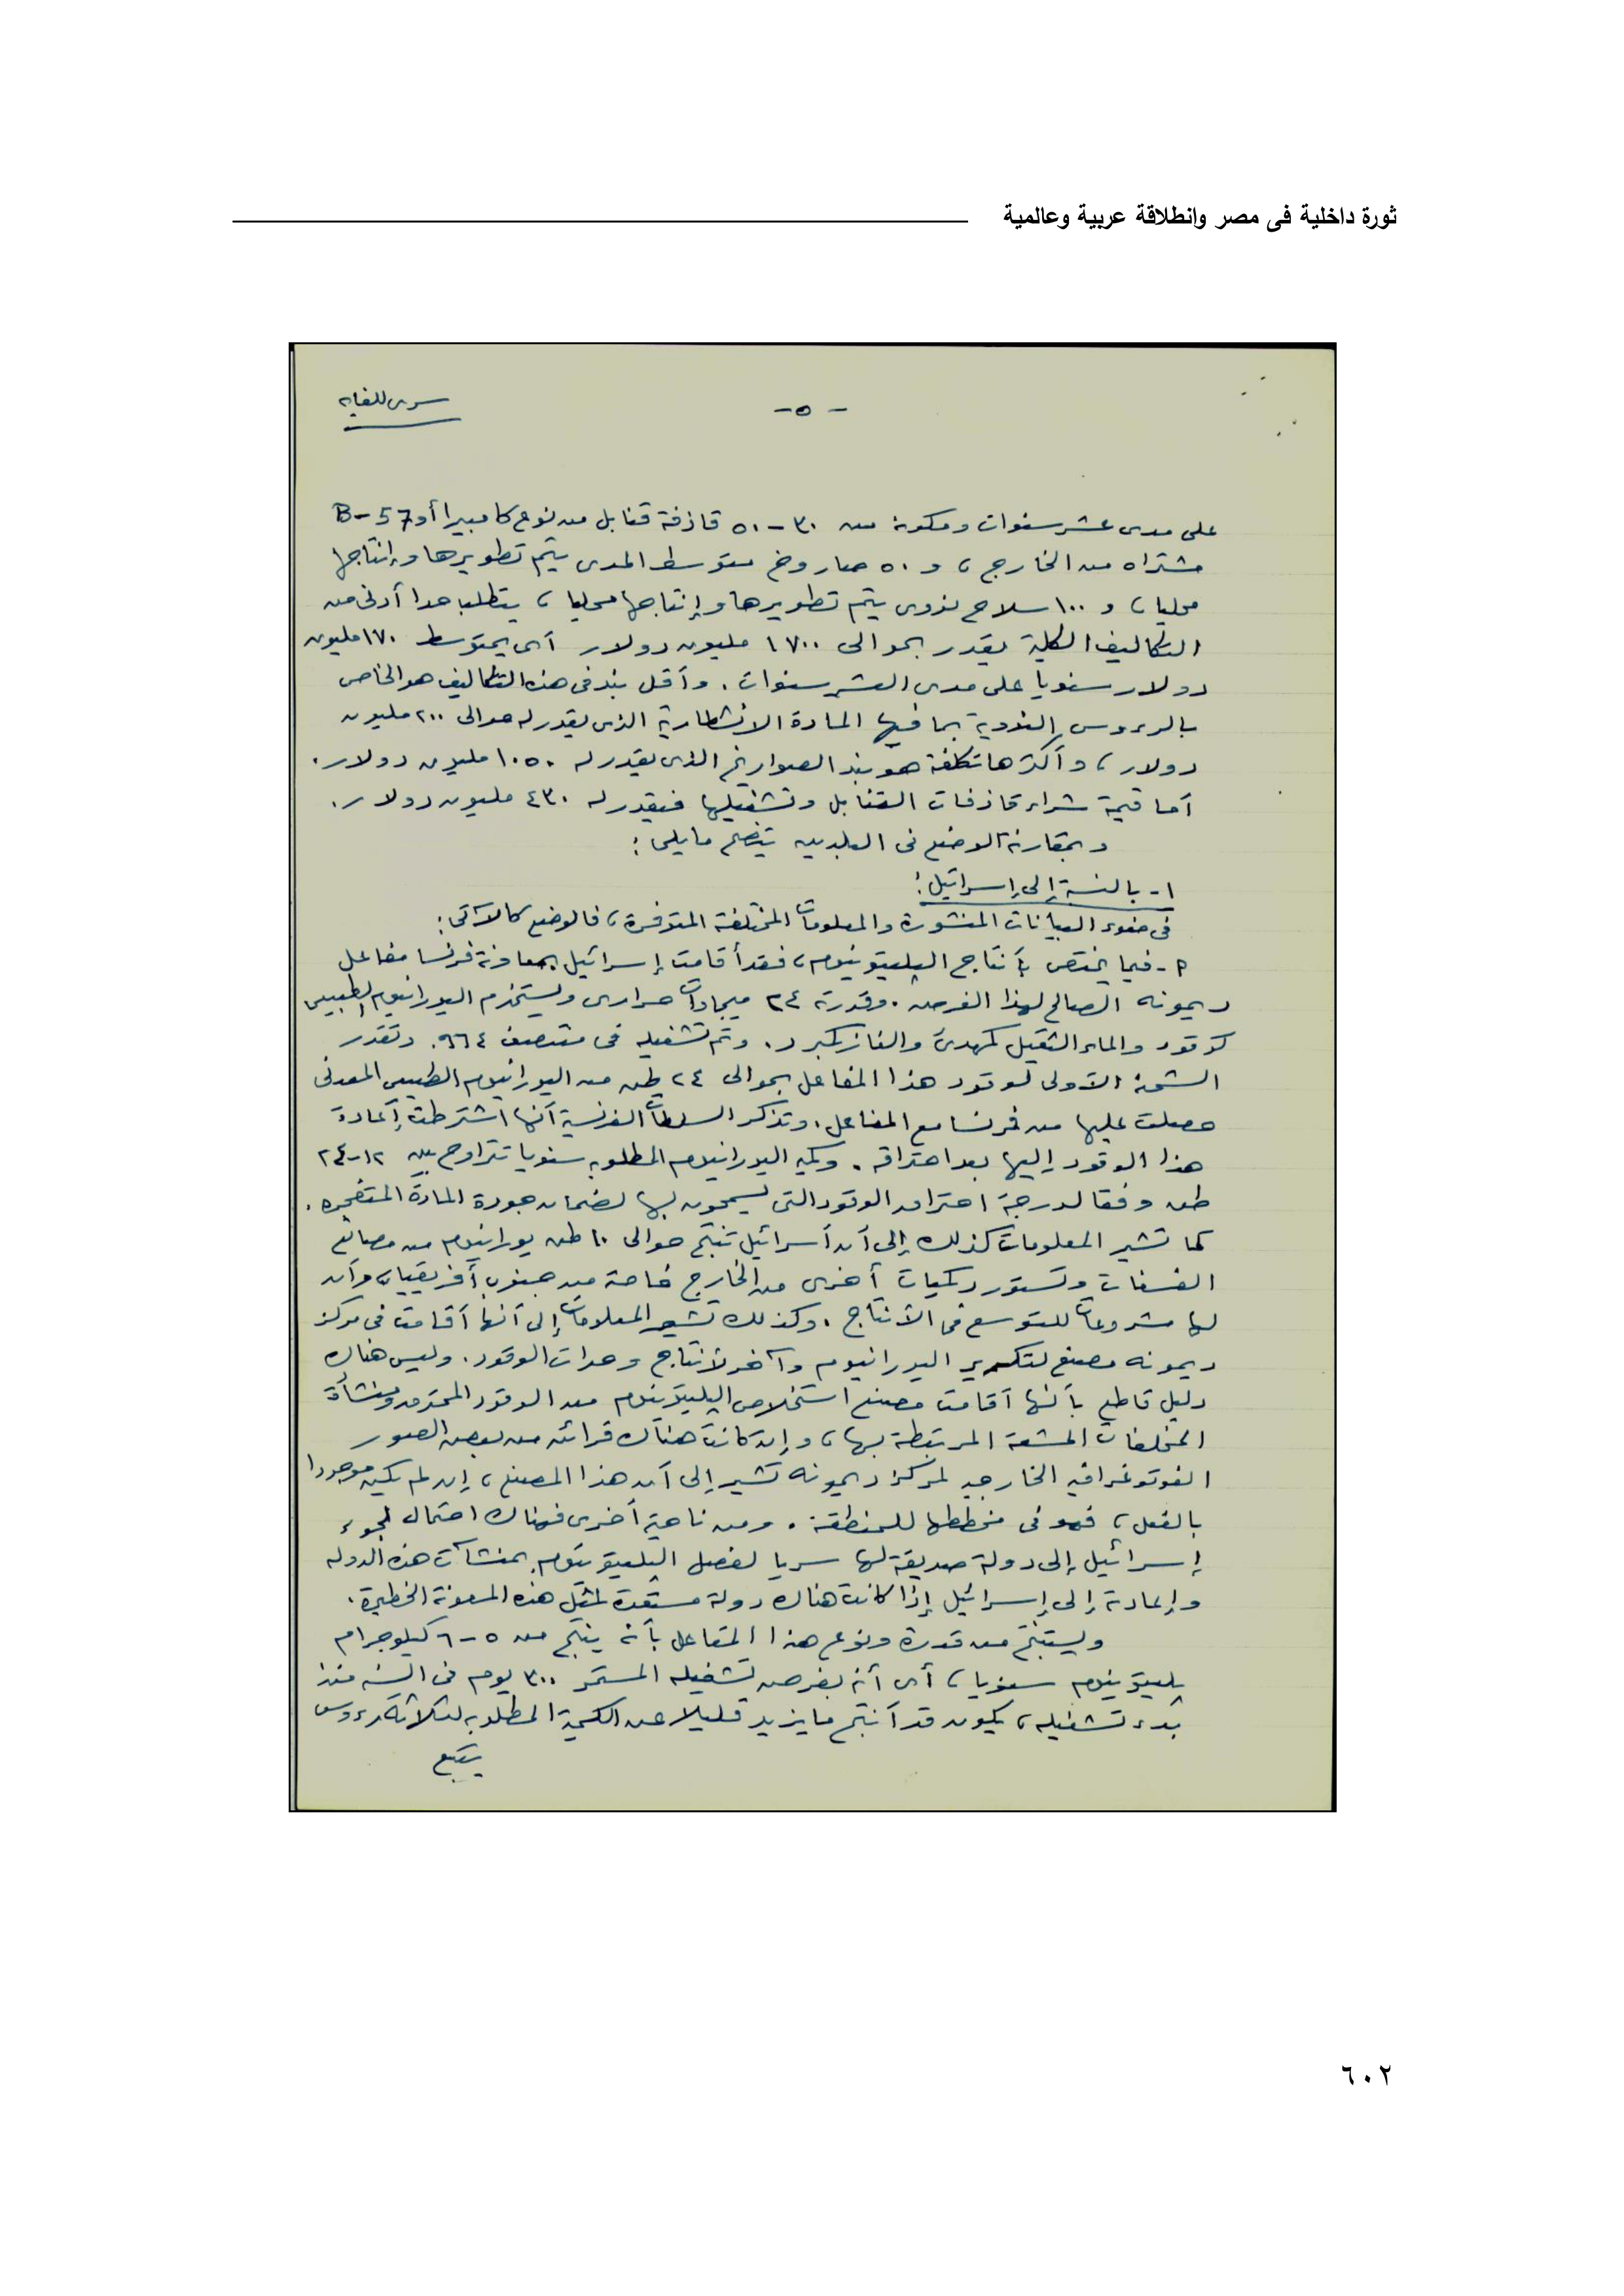 ثورة داخلية فى مصر وانطلاقة عربية وعالمية
سرى للغاية
- ٥ -
على مدى عشر سنوات ومكونة من ٣٠ - ٥٠ قاذفة قنابل من نوع كامبيرا أو B-57
مشتراه من الخارج ، و ٥٠ صاروخ متوسط المدى يتم تطويرها وإنتاجها
محليا ، و ١٠٠ سلاح نووى يتم تطويرها وإنتاجها محليا ، يتطلب حدا أدنى من
التكاليف الكلية يقدر بحوالى ١٧٠٠ مليون دولار أى بمتوسط ١٧٠ مليون
دولار سنويا على مدى العشر سنوات . وأقل بند فى هذه التكاليف هو الخاص
بالرءوس النووية بما فيها المادة الانشطارية الذى يقدر له حوالى ٢٠٠ مليون
دولار ، وأكثرها تكلفة هو بند الصواريخ الذى يقدر له ١٠٥٠ مليون دولار .
أما قيمة شراء قاذفات القنابل وتشغيلها فيقدر له ٤٣٠ مليون دولار .
وبمقارنة الوضع فى البلدين يتضح مايلى :
١ - بالنسبة إلى إسرائيل :
فى ضوء البيانات المنشورة والمعلومات المختلفة المتوفرة ، فالوضع كالآتى :
أ - فيما يختص بأنتاج البليتونيوم ، فقد أقامت إسرائيل بمعاونة فرنسا مفاعل
ديمونه الصالح لهذا الغرض . وقدرته ٢٤ ميجاوات حرارى ويستخدم اليورانيوم الطبيعى
كوقود والماء الثقيل كمهدئ والغاز كمبرد . وتم تشغيله فى منتصف ٩٦٤ . وتقدر
الشحنة الأولى لوقود هذا المفاعل بحوالى ٢٤ طن من اليورانيوم الطبيعى المعدنى
حصلت عليها من فرنسا مع المفاعل . وتذكر السلطات الفرنسية أنها اشترطت إعادة
هذا الوقود إليها بعد احتراقه . وكمية اليورانيوم المطلوبه سنويا تتراوح بين ١٢-٢٤
طن وفقا لدرجة احتراق الوقود التى يسمحون بها لضمان جودة المادة المتفجره .
كما تشير المعلومات كذلك إلى أن أسرائيل تنتج حوالى ١٠ طن يورانيوم من مصانع
الفسفات وتستورد كميات أخرى من الخارج خاصة من جنوب أفريقيا ، وأن
لها مشروعات للتوسع فى الأنتاج . وكذلك تشير المعلومات إلى أنها أقامت فى مركز
ديمونه مصنع لتكرير اليورانيوم وآخر لأنتاج وحدات الوقود . وليس هناك
دليل قاطع بأنها أقامت مصنع استخلاص البليتونيوم من الوقود المحترق ومنشأة
المخلفات المشعة المرتبطة بها ، وإن كانت هناك قرائن من بعض الصور
الفوتوغرافيه الخارجيه لمركز ديمونه تشير إلى أن هذا المصنع ، إن لم يكن موجودا
بالفعل ، فهو فى مخططها للمنطقة . ومن ناحية أخرى فهناك احتمال لجوء
إسرائيل إلى دولة صديقة لها سريا لفصل البليتونيوم بمنشآت هذه الدوله
وإعادته إلى إسرائيل إذا كانت هناك دولة مستعدة لمثل هذه المعونة الخطيرة .
ويستنتج من قدرة ونوع هذا المفاعل بأنه ينتج من ٥ - ٦ كيلوجرام
بليتونيوم سنويا ، أى أنه بفرض تشغيله المستمر ٣٠٠ يوم فى السنه منذ
بدء تشغيله ، يكون قد أنتج مايزيد قليلا عن الكمية المطلوبه لثلاثة رءوس
يتبع
٦٠٢